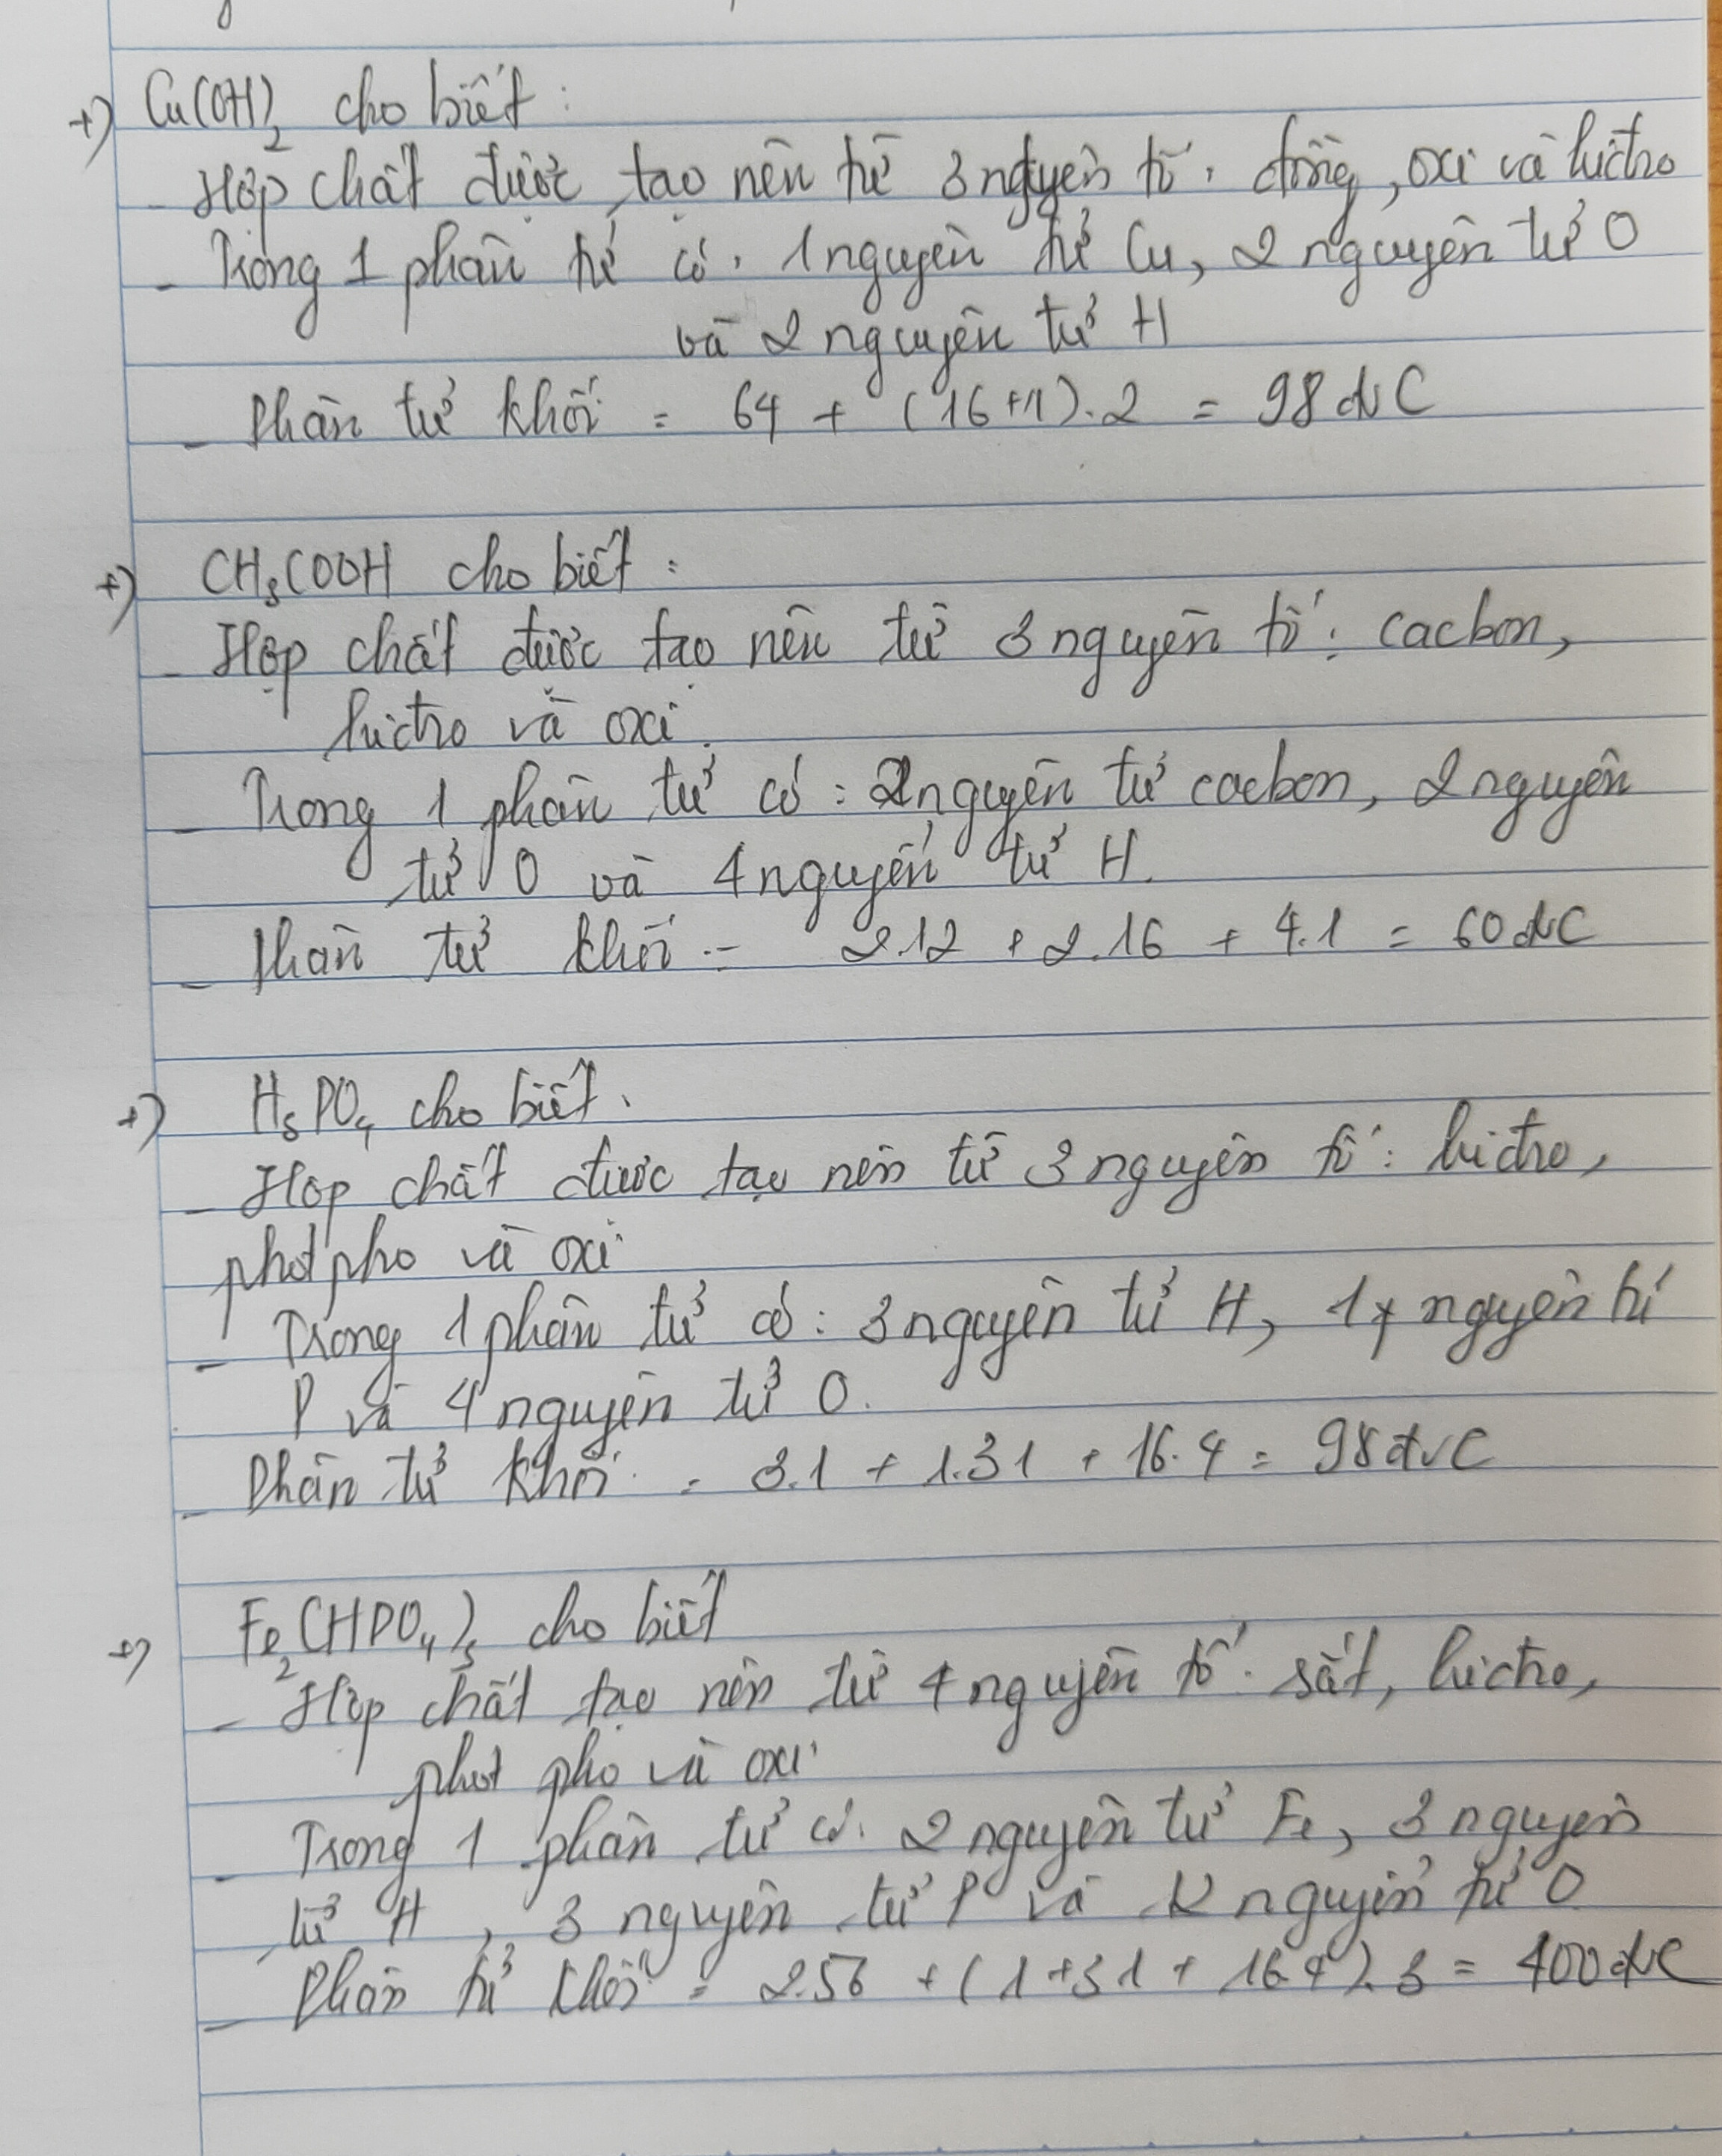 +) Cu(OH)₂ cho biết :
- Hợp chất được tạo nên từ 3 nguyên tố : đồng, oxi và hiđro
- Trong 1 phân tử có : 1 nguyên tử Cu, 2 nguyên tử O
và 2 nguyên tử H
- Phân tử khối = 64 + (16+1).2 = 98 đvC
+) CH₃COOH cho biết :
- Hợp chất được tạo nên từ 3 nguyên tố : cacbon,
hiđro và oxi.
- Trong 1 phân tử có : 2 nguyên tử cacbon, 2 nguyên
tử O và 4 nguyên tử H.
- Phân tử khối = 2.12 + 2.16 + 4.1 = 60 đvC
+) H₃PO₄ cho biết :
- Hợp chất được tạo nên từ 3 nguyên tố : hiđro,
photpho và oxi
- Trong 1 phân tử có : 3 nguyên tử H, 1 nguyên tử
P và 4 nguyên tử O.
- Phân tử khối = 3.1 + 1.31 + 16.4 = 98 đvC
+) Fe₂(HPO₄)₃ cho biết
- Hợp chất tạo nên từ 4 nguyên tố : sắt, hiđro,
phot pho và oxi
- Trong 1 phân tử có : 2 nguyên tử Fe, 3 nguyên
tử H, 3 nguyên tử P và 12 nguyên tử O
- Phân tử khối = 2.56 + (1+31 + 16.4).3 = 400 đvC